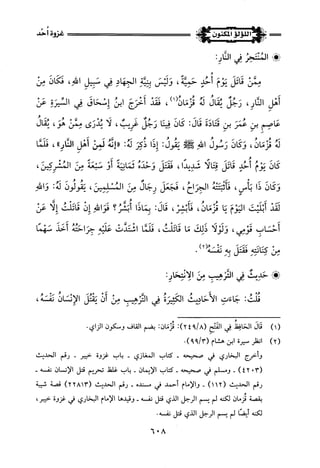 اللؤلؤ المكنون
غزوة أحد
* المُنْتَحِرُ فِي النَّارِ:
مِمَّنْ قَاتَلَ يَوْمَ أُحُدٍ حَمِيَّةً، وَلَيْسَ بِنِيَّةِ الجِهَادِ فِي سَبِيلِ اللهِ، فَكَانَ مِنْ
أَهْلِ النَّارِ، رَجُلٌ يُقَالُ لَهُ قُزْمَانُ(١)، فَقَدْ أَخْرَجَ ابنُ إِسْحَاقَ فِي السِّيرَةِ عَنْ
عَاصِمِ بنِ عُمَرَ بنِ قَتَادَةَ قَالَ: كَانَ فِينَا رَجُلٌ غَرِيبٌ، لَا يُدْرَى مِمَّنْ هُوَ، يُقَالُ
لَهُ قُزْمَانُ، وَكَانَ رَسُولُ اللهِ ﷺ يَقُولُ: إِذَا ذُكِرَ لَهُ: «إِنَّهُ لَمِنْ أَهْلِ النَّارِ»، فَلَمَّا
كَانَ يَوْمُ أُحُدٍ قَاتَلَ قِتَالًا شَدِيدًا، فَقَتَلَ وَحْدَهُ ثَمَانِيَةً أَوْ سَبْعَةً مِنَ المُشْرِكِينَ،
وَكَانَ ذَا بَأْسٍ، فَأَثْبَتَتْهُ الجِرَاحُ، فَجَعَلَ رِجَالٌ مِنَ المُسْلِمِينَ، يَقُولُونَ لَهُ: وَاللهِ
لَقَدْ أَبْلَيْتَ اليَوْمَ يَا قُزْمَانُ، فَأَبْشِرْ، قَالَ: بِمَاذَا أَبْشُرُ؟ فَوَاللهِ إِنْ قَاتَلْتُ إِلَّا عَنْ
أَحْسَابِ قَوْمِي، وَلَوْلَا ذَلِكَ مَا قَاتَلْتُ، فَلَمَّا اشْتَدَّتْ عَلَيْهِ جِرَاحَتُهُ أَخَذَ سَهْمًا
مِنْ كِنَانَتِهِ فَقَتَلَ بِهِ نَفْسَهُ(٢).
* حَدِيثٌ فِي التَّرْهِيبِ مِنَ الِانْتِحَارِ:
قُلْتُ: جَاءَتِ الأَحَادِيثُ الكَثِيرَةُ فِي التَّرْهِيبِ مِنْ أَنْ يَقْتُلَ الإِنْسَانُ نَفْسَهُ،
(١) قَالَ الحَافِظُ فِي الفَتْحِ (٢٤٩/٨): قُزمان: بضم القاف وسكون الزاي.
(٢) انظر سيرة ابن هشام (٩٩/٣).
وأخرج البخاري في صحيحه - كتاب المغازي - باب غزوة خيبر - رقم الحديث
(٤٢٠٣) - ومسلم في صحيحه - كتاب الإيمان - باب غلظ تحريم قتل الإنسان نفسه -
رقم الحديث (١١٢) - والإمام أحمد في مسنده - رقم الحديث (٢٢٨١٣) قصة شبيهة
بقصة قُزمان لكنه لم يسم الرجل الذي قتل نفسه - وقيدها الإمام البخاري في غزوة خيبر،
لكنه أيضًا لم يسم الرجل الذي قتل نفسه.
٦٠٨